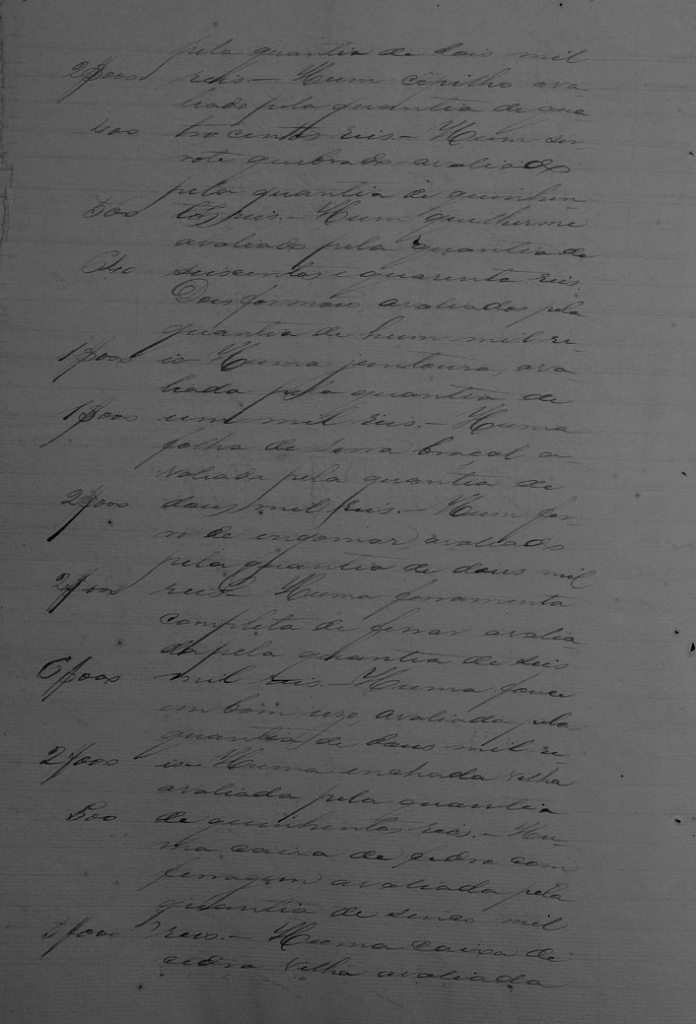 pela quantia de dois mil
2$000 reis.- Hum cepilho ava
liado pela quantia de qua
400 trocentos reis.- Hum ser
rote quebrado avaliado
pela quantia de quinhen
500 tos reis.- Hum guilherme
avaliado pela quantia de
640 seiscentos e quarenta reis.
Dois formões, avaliados pela
quantia de hum mil re-
1$000 is- Huma juntoura, ava
liada pela quantia de
1$000 um mil reis.- Huma
folha de serra braçal a-
valiada pela quantia de
2$000 dous mil reis.- Hum fer
ro de engomar, avaliado
pela quantia de dous mil
2$000 reis- Huma ferramenta
completa de ferrar avalia
da pela quantia de seis
6$000 mil reis.- Huma fouce
em bom uzo, avaliada pela
quantia de dous mil re-
2$000 is- Huma enchada velha
avaliada pela quantia
500 de quinhentos reis.- Hu-
ma caixa de cedro com
ferragem avaliada pela
quantia de sinco mil
5$000 reis.- Huma caixa de
cedro velha avaliada